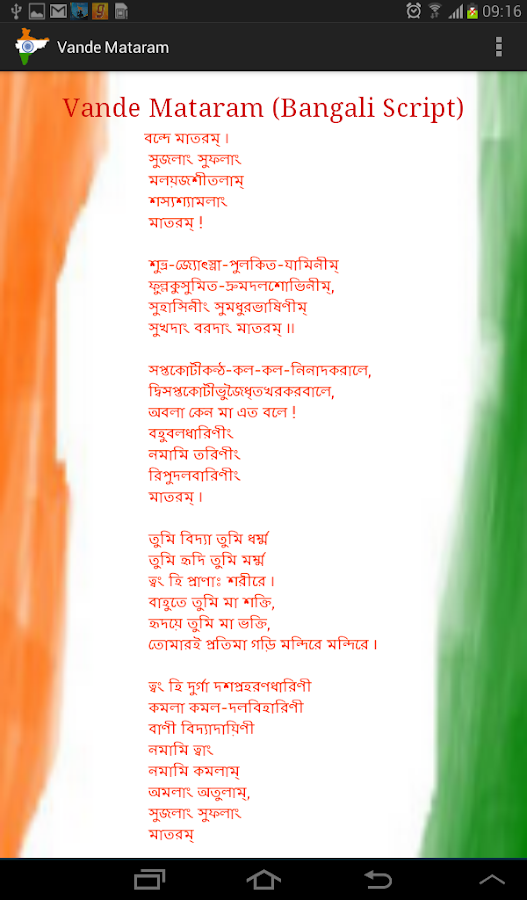 09:16
Vande Mataram
Vande Mataram (Bangali Script)
বন্দে মাতরম্ ৷
সুজলাং সুফলাং
মলয়জশীতলাম্
শস্যশ্যামলাং
মাতরম্ !
শুভ্র-জ্যোৎস্না-পুলকিত-যামিনীম্
ফুল্লকুসুমিত-দ্রুমদলশোভিনীম্,
সুহাসিনীং সুমধুরভাষিণীম্
সুখদাং বরদাং মাতরম্ ৷৷
সপ্তকোটীকন্ঠ-কল-কল-নিনাদকরালে,
দ্বিসপ্তকোটীভুজৈধৃতখরকরবালে,
অবলা কেন মা এত বলে !
বহুবলধারিণীং
নমামি তরিণীং
রিপুদলবারিণীং
মাতরম্ ৷
তুমি বিদ্যা তুমি ধর্ম্ম
তুমি হৃদি তুমি মর্ম্ম
ত্বং হি প্রাণাঃ শরীরে ৷
বাহুতে তুমি মা শক্তি,
হৃদয়ে তুমি মা ভক্তি,
তোমারই প্রতিমা গড়ি মন্দিরে মন্দিরে ৷
ত্বং হি দুর্গা দশপ্রহরণধারিণী
কমলা কমল-দলবিহারিণী
বাণী বিদ্যাদায়িণী
নমামি ত্বাং
নমামি কমলাম্
অমলাং অতুলাম্,
সুজলাং সুফলাং
মাতরম্